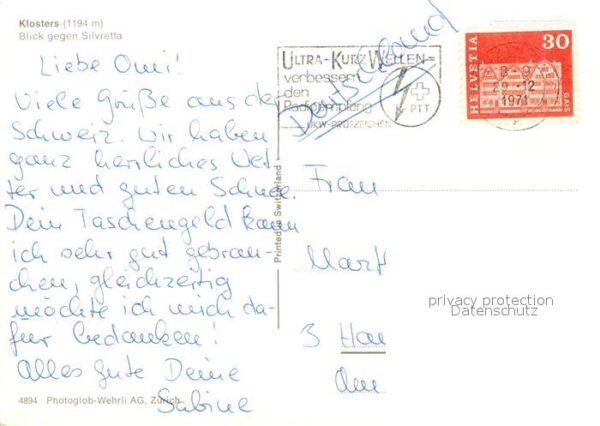 Klosters (1194 m)
Blick gegen Silvretta
Liebe Omi!
Viele Grüße aus der
Schweiz. Wir haben
ganz herrliches Wet-
ter und guten Schnee.
Dein Taschengeld kann
ich sehr gut gebrau-
chen, gleichzeitig
möchte ich mich da-
für bedanken!
Alles gute Deine
Sabine
4894 Photoglob-Wehrli AG, Zürich
Printed in Switzerland
ULTRA-KURZWELLEN=
verbessern
den
Radioempfang
PTT
Deutschland
HELVETIA
30
GAIS
1971
Frau
3 Han
privacy protection
Datenschutz